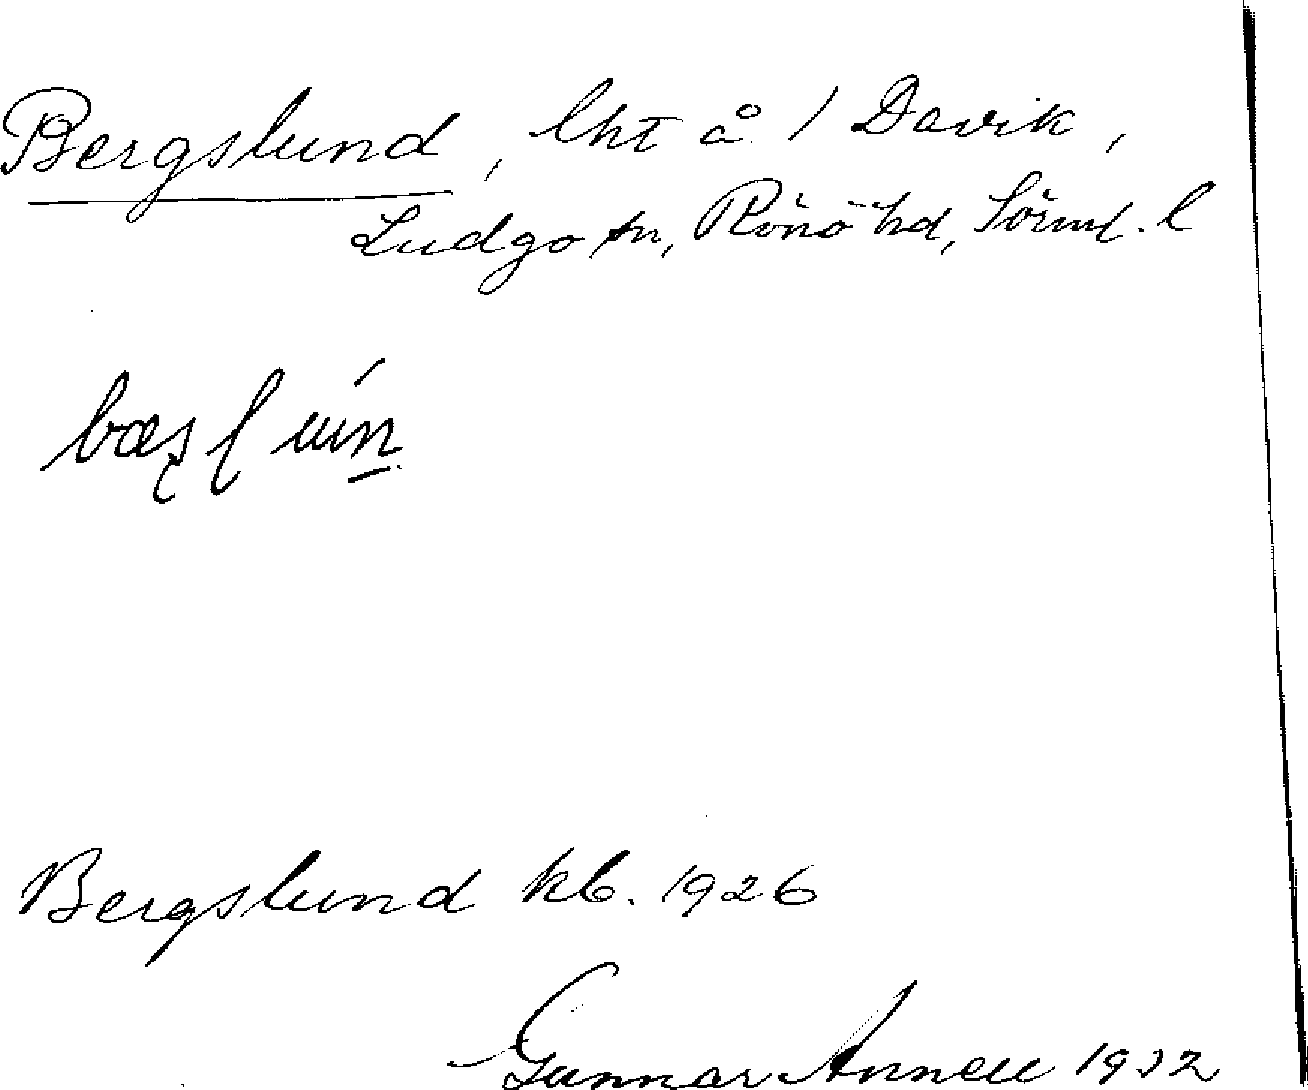 Bergslund, lht å 1 Davik,
Ludgo sn, Rönö hd, Sörml. l
Bergslund kb. 1926
Gunnar Annell 1932